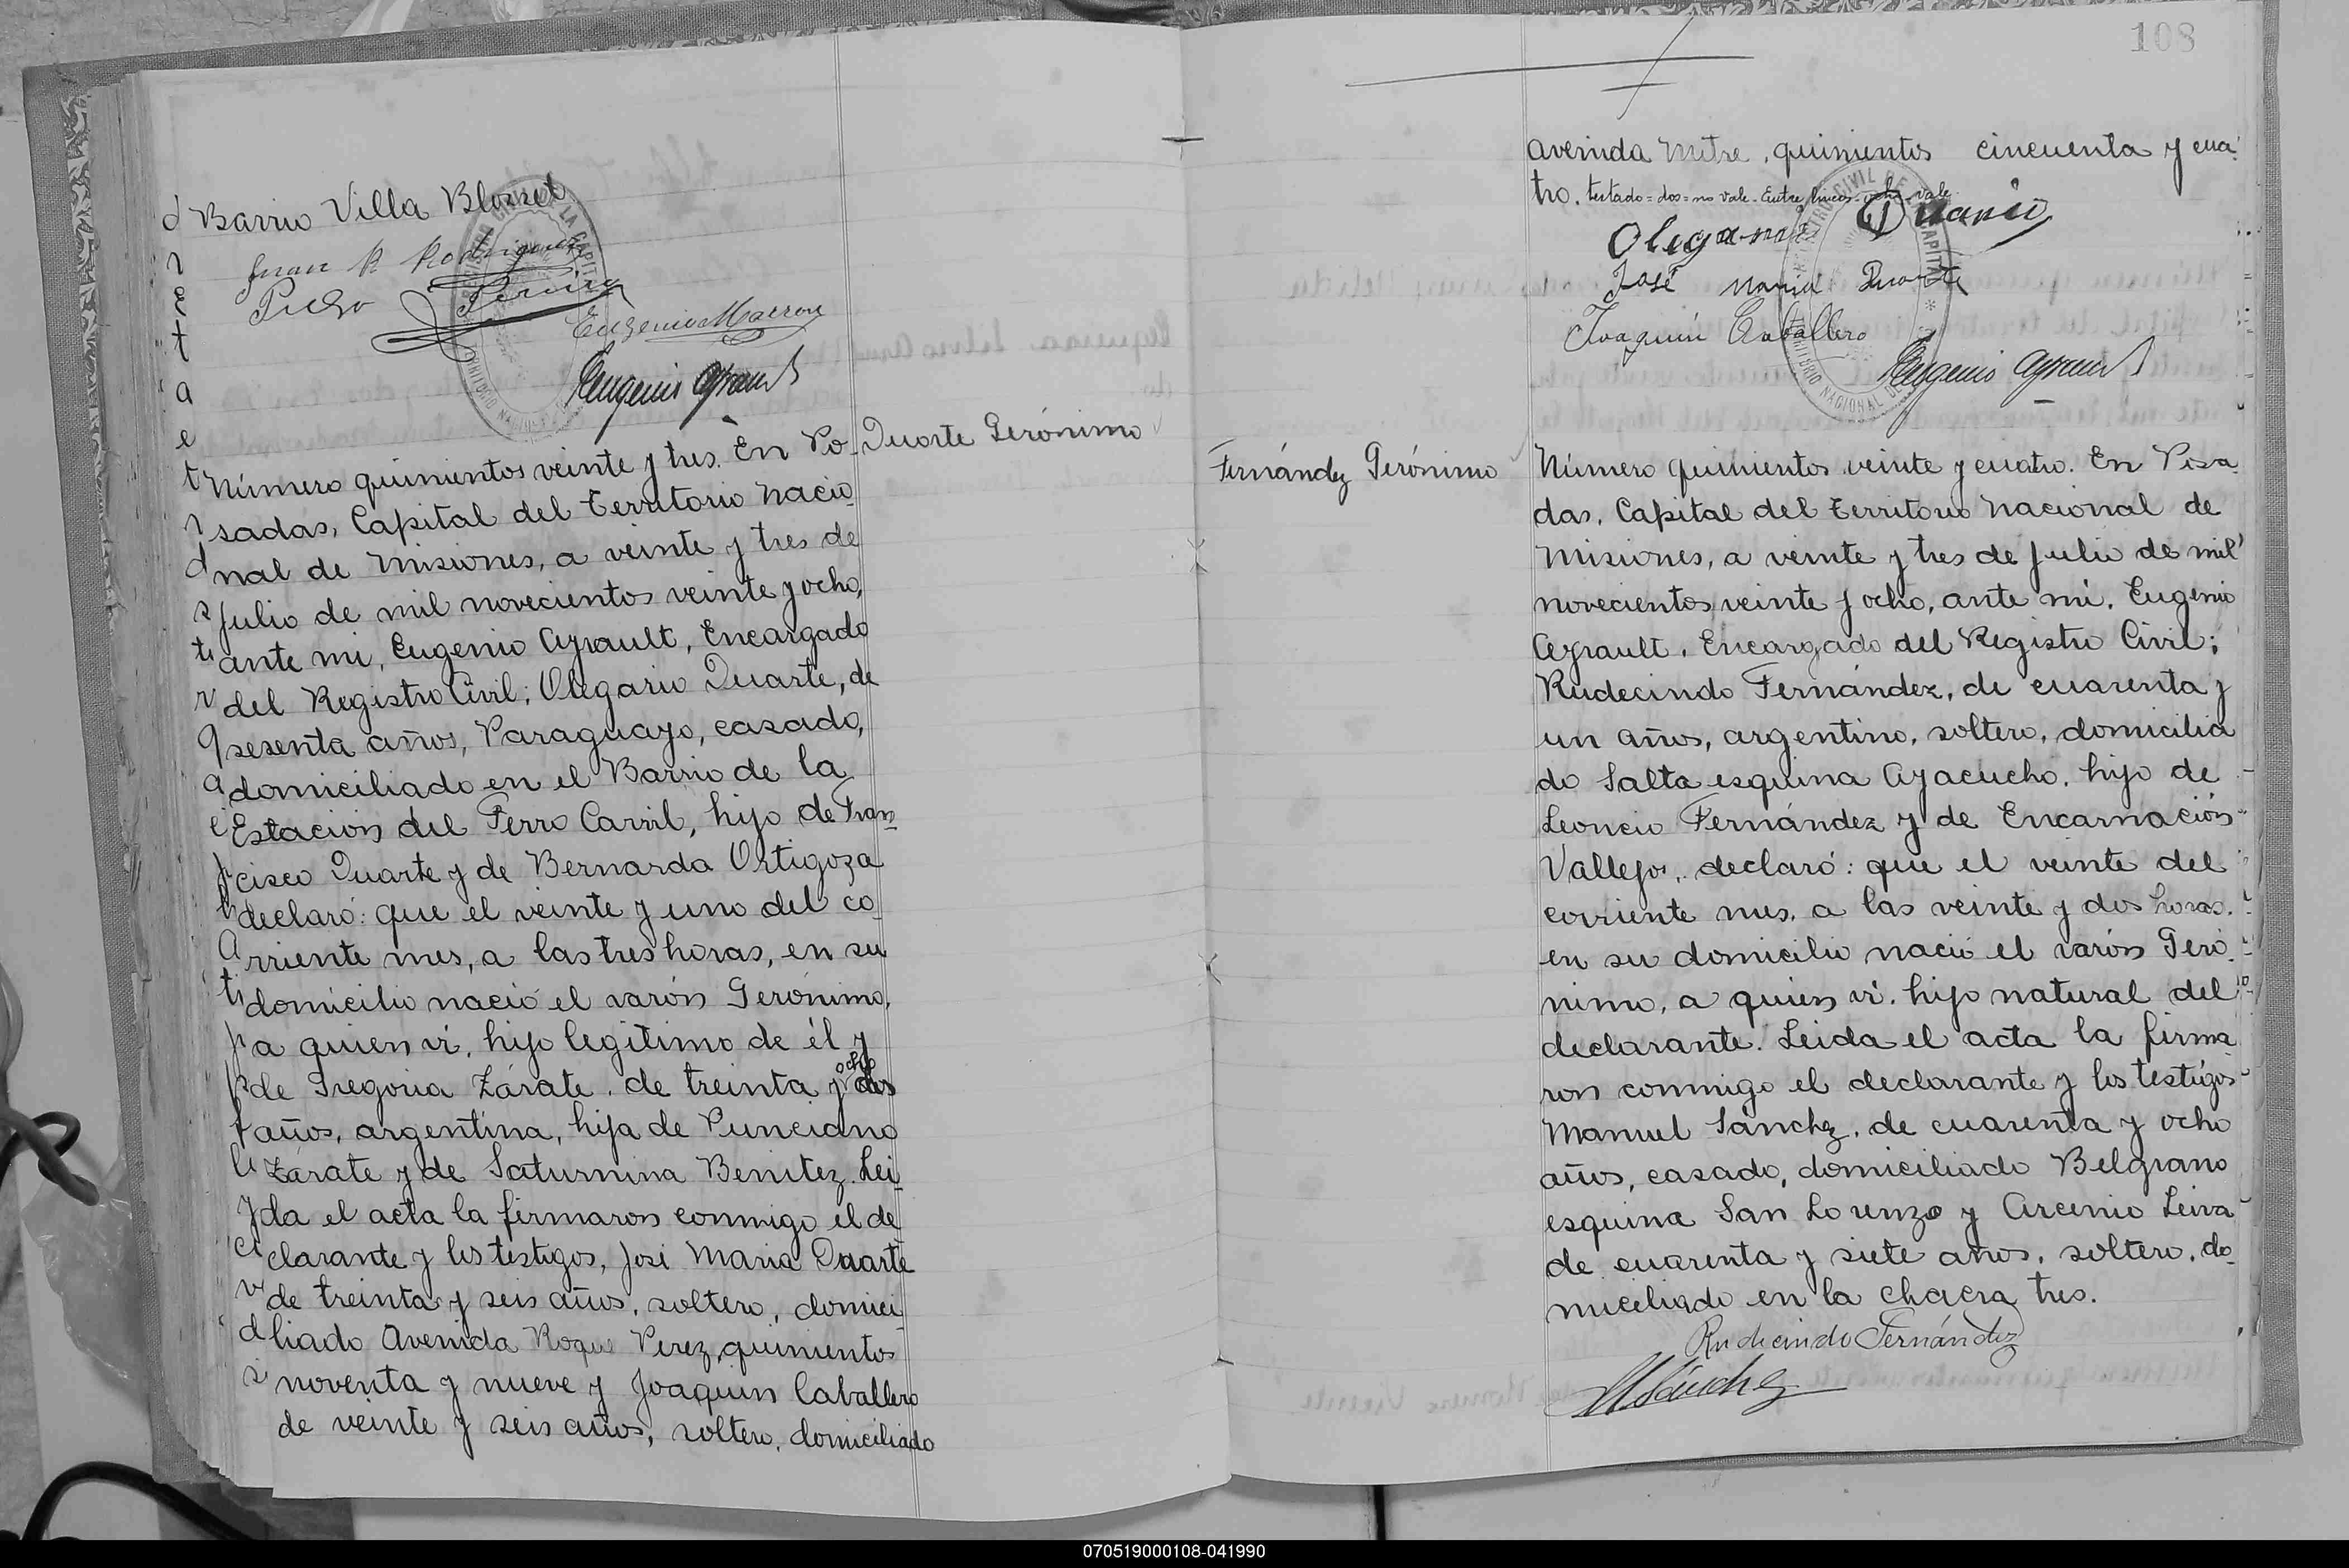 Barrio Villa Blosset
Juan R Rodriguez
Pedro Pereira
Eugenio Marron
Eugenio Ayrault
Número quinientos veinte y tres. En Po-
sadas, Capital del Territorio Nacio
nal de Misiones, a veinte y tres de
Julio de mil novecientos veinte y ocho,
ante mi, Eugenio Ayrault, Encargado
del Registro Civil; Olegario Duarte, de
sesenta años, Paraguayo, casado,
domiciliado en el Barrio de la
Estación del Ferro Carril, hijo de Fran
cisco Duarte y de Bernarda Ortigoza
declaró: que el veinte y uno del co
rriente mes, a las tres horas, en su
domicilio nació el varón Gerónimo,
a quien vi, hijo legítimo de él y
de Gregoria Zárate, de treinta y ocho dos
años, argentina, hija de Punciano
Zárate y de Saturnina Benitez. Lei
da el acta la firmaron conmigo el de
clarante y los testigos, José Maria Duarte
de treinta y seis años, soltero, domici
liado Avenida Roque Perez, quinientos
noventa y nueve y Joaquin Caballero
de veinte y seis años, soltero, domiciliado
Duarte Gerónimo
108
avenida Mitre, quinientos cincuenta y cua
tro. testado=dos=no vale. Entre lineas=ocho=vale
Olegario Duarte
José Maria Duarte
Joaquín Caballero
Eugenio Ayrault
Fernández Gerónimo
Número quinientos veinte y cuatro. En Posa
das, Capital del Territorio Nacional de
Misiones, a veinte y tres de Julio de mil
novecientos veinte y ocho, ante mi, Eugenio
Ayrault, Encargado del Registro Civil;
Rudecindo Fernández, de cuarenta y
un años, argentino, soltero, domicilia
do Salta esquina Ayacucho, hijo de
Leoncio Fernández y de Encarnación
Vallejos, declaró: que el veinte del
corriente mes, a las veinte y dos horas,
en su domicilio nació el varón Geró
nimo, a quien vi, hijo natural del
declarante. Leida el acta la firma
ron conmigo el declarante y los testigos
Manuel Sánchez, de cuarenta y ocho
años, casado, domiciliado Belgrano
esquina San Lorenzo y Arcenio Leiva
de cuarenta y siete años, soltero, do
miciliado en la chacra tres.
Rudecindo Fernández
M Sánchez
070519000108-041990